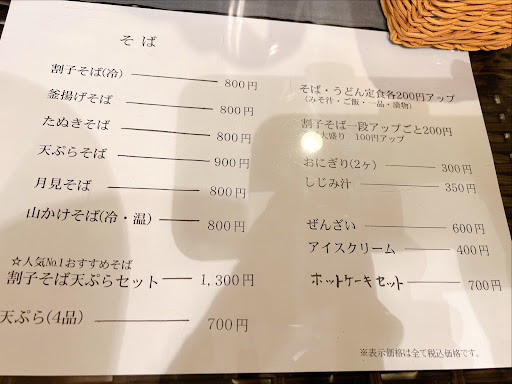 そば
割子そば(冷) 800円
釜揚げそば 800円
たぬきそば 800円
天ぷらそば 900円
月見そば 800円
山かけそば(冷・温) 800円
☆人気№1おすすめそば
割子そば天ぷらセット 1,300円
天ぷら(4品) 700円
そば・うどん定食各200円アップ
(みそ汁・ご飯・一品・漬物)
割子そば一段アップごと200円
大盛り 100円アップ
おにぎり(2ヶ) 300円
しじみ汁 350円
ぜんざい 600円
アイスクリーム 400円
ホットケーキセット 700円
※表示価格は全て税込価格です。